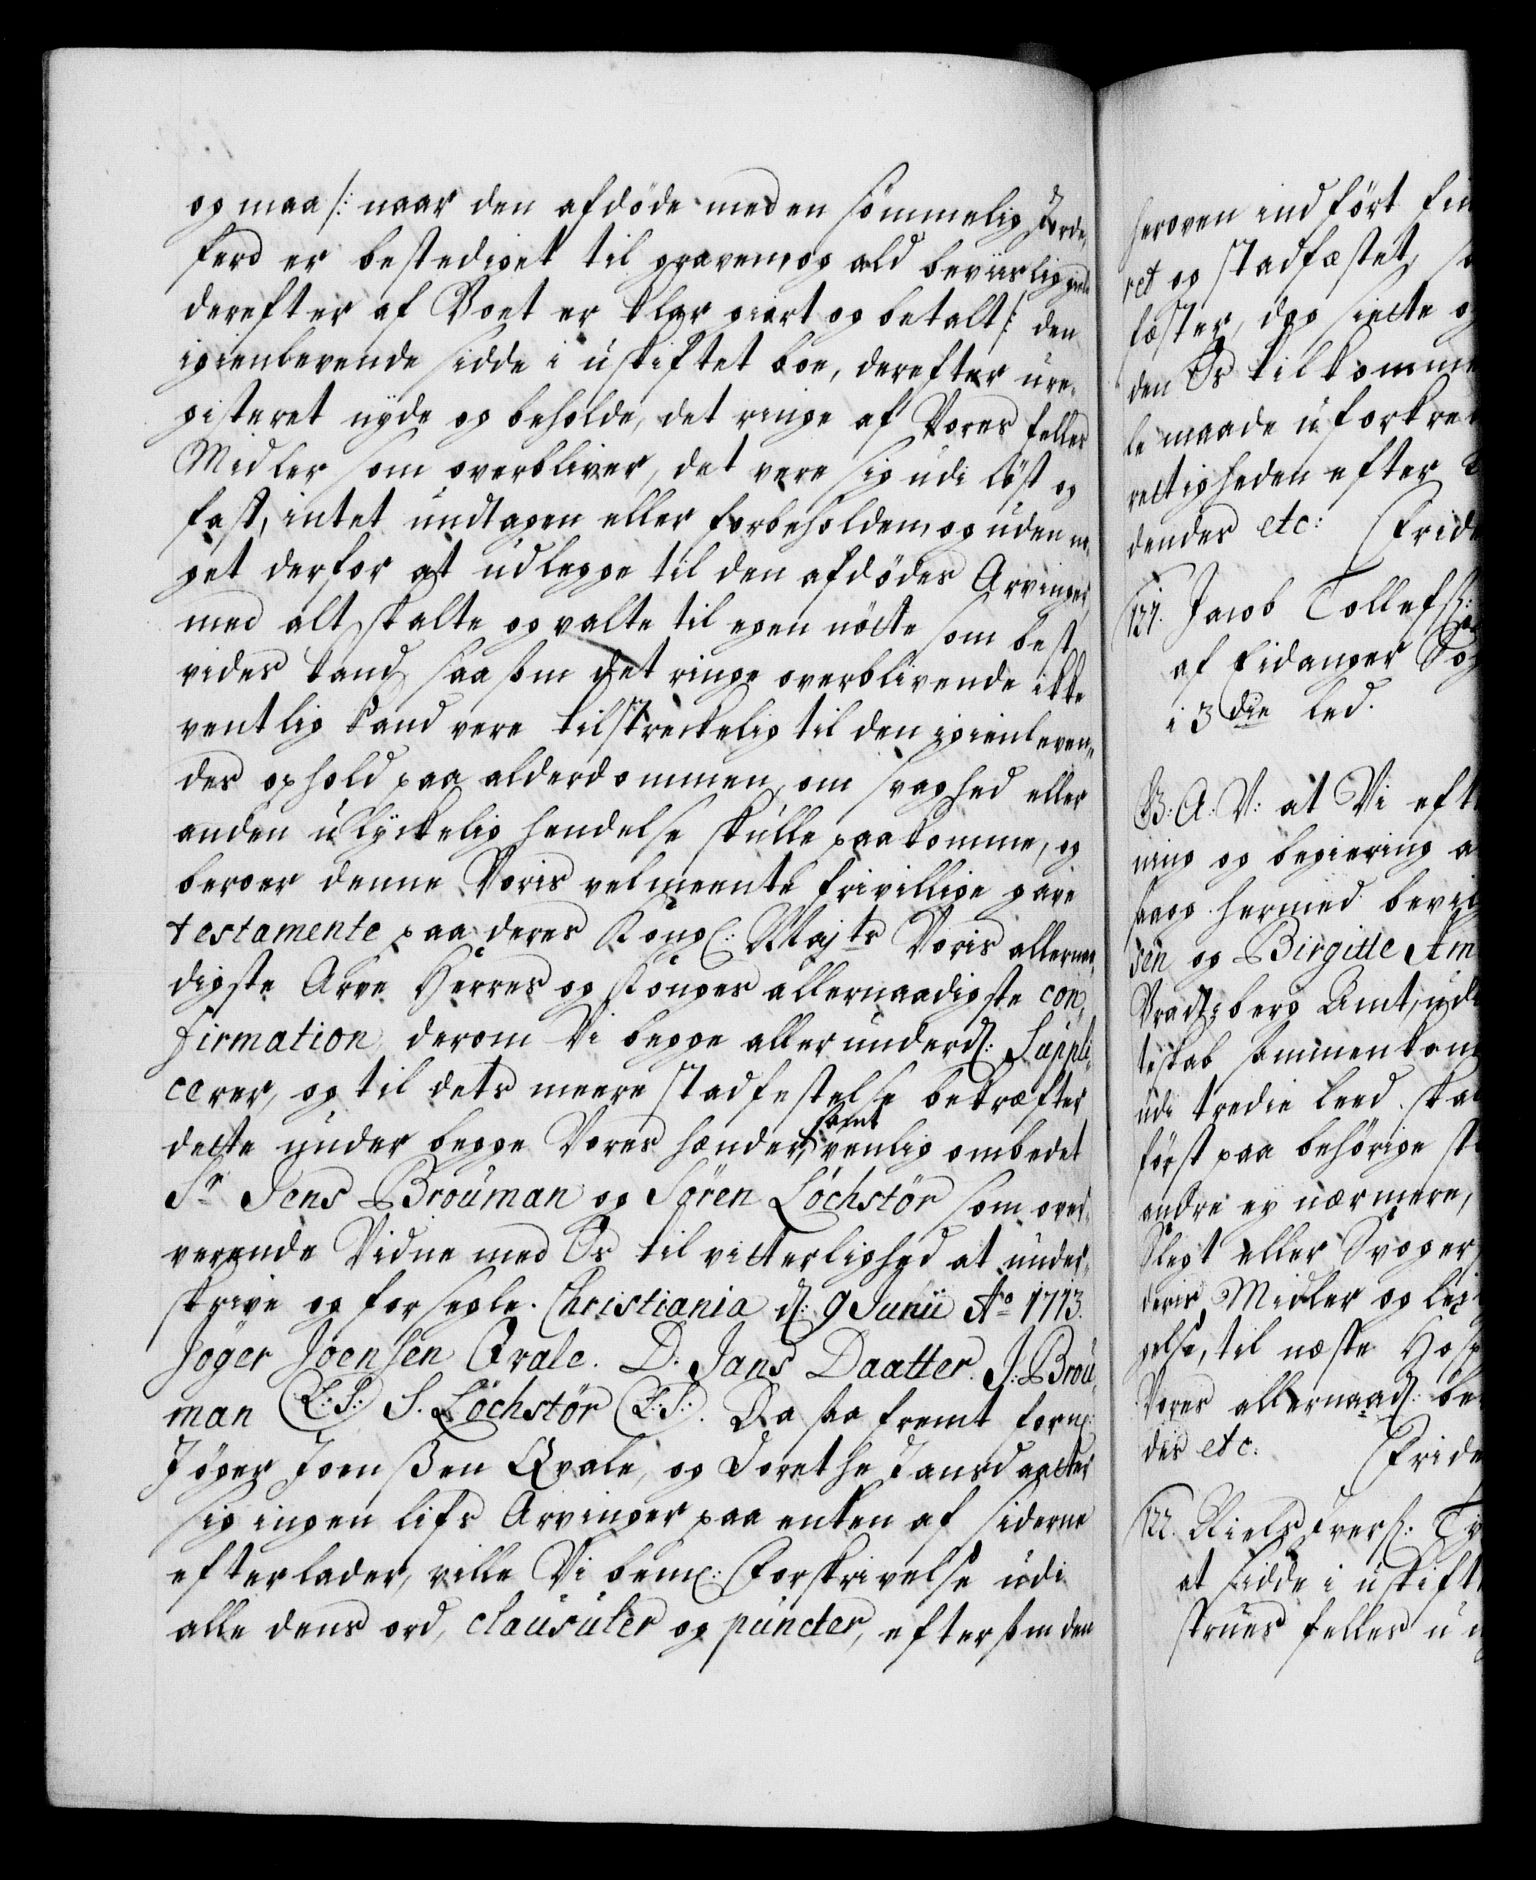 og maa /: naar den afdöde med en sömmelig Jorde,
ferd er bestediget til graven, og ald beviislig gield
derefter af Boet er klar giort og betalt :/ den
igienlevende sidde i uskiftet boe, derefter ure-
gisteret nyde og beholde, det ringe af Vores felles
Midler som overbliver, det vere sig udi löst og
fast, intet undtagen eller forbeholden, og uden no-
get derfor at udlegge til den afdödes Arvinger,
med alt skalte og valte til egen nötte som best
vides kand, saasom det ringe overblivende ikke
ventlig kand vere tilstreckelig til den igienleven-
des ophold paa alderdommen, om svaghed eller
anden ulyckelig hendelse skulle paakomme, og
beroer denne Voris velmeente frivillige gave
testamente paa deres Kongl: Majts Voris allernaa-
digste Arve Herres og Konges allernaadigste con-
firmation, derom Vi begge allerunderd: Suppli-
cerer, og til dets meere stadfestelse bekræfter
dette under begge Vores hænder, samt venlig ombedet
Sr Jens Brouman og Sören Löchstör som over-
verende Vidne med Os til vitterlighed at under-
skrive og forsegle. Christiania d: 9 Junii Ao 1713.
Jöger Joensen Qvale. D. Jans Daatter. J. Brou-
man (L:S:) S. Löchstör (L:S:). Da saa fremt forn:
Jöger Joenssen Qvale, og Dorethe Jansdaatter
sig ingen lifs Arvinger paa enten af siderne
efterlader, ville Vi bem: Forskrivelse udi
alle dens ord, clausuler og puncter, eftersom den
heroven indfört fin
ret og stadfæstet, s
fæster, dog siette o
den Os tilkomme
le maade uforkre
rettigheden efter
dendes etc: Frid
121. Jacob Tollefs:
af Eidanger Sog
i 3die led.
B: A: V: at Vi eft
ning og begiering a
saug hermed bevil
sen og Birgitte Am
Bradsberg Amt, udi
teskab sammenkom
udi tredie leed. ska
först paa behörige st
andre ey nærmere,
Slegt eller Svoger
deris Midler og lei
gelse, til næste Hosp
Vores allernaad: be
des etc. Fride
122. Niels Ivers: Ty
at sidde i uskift
strues felles u